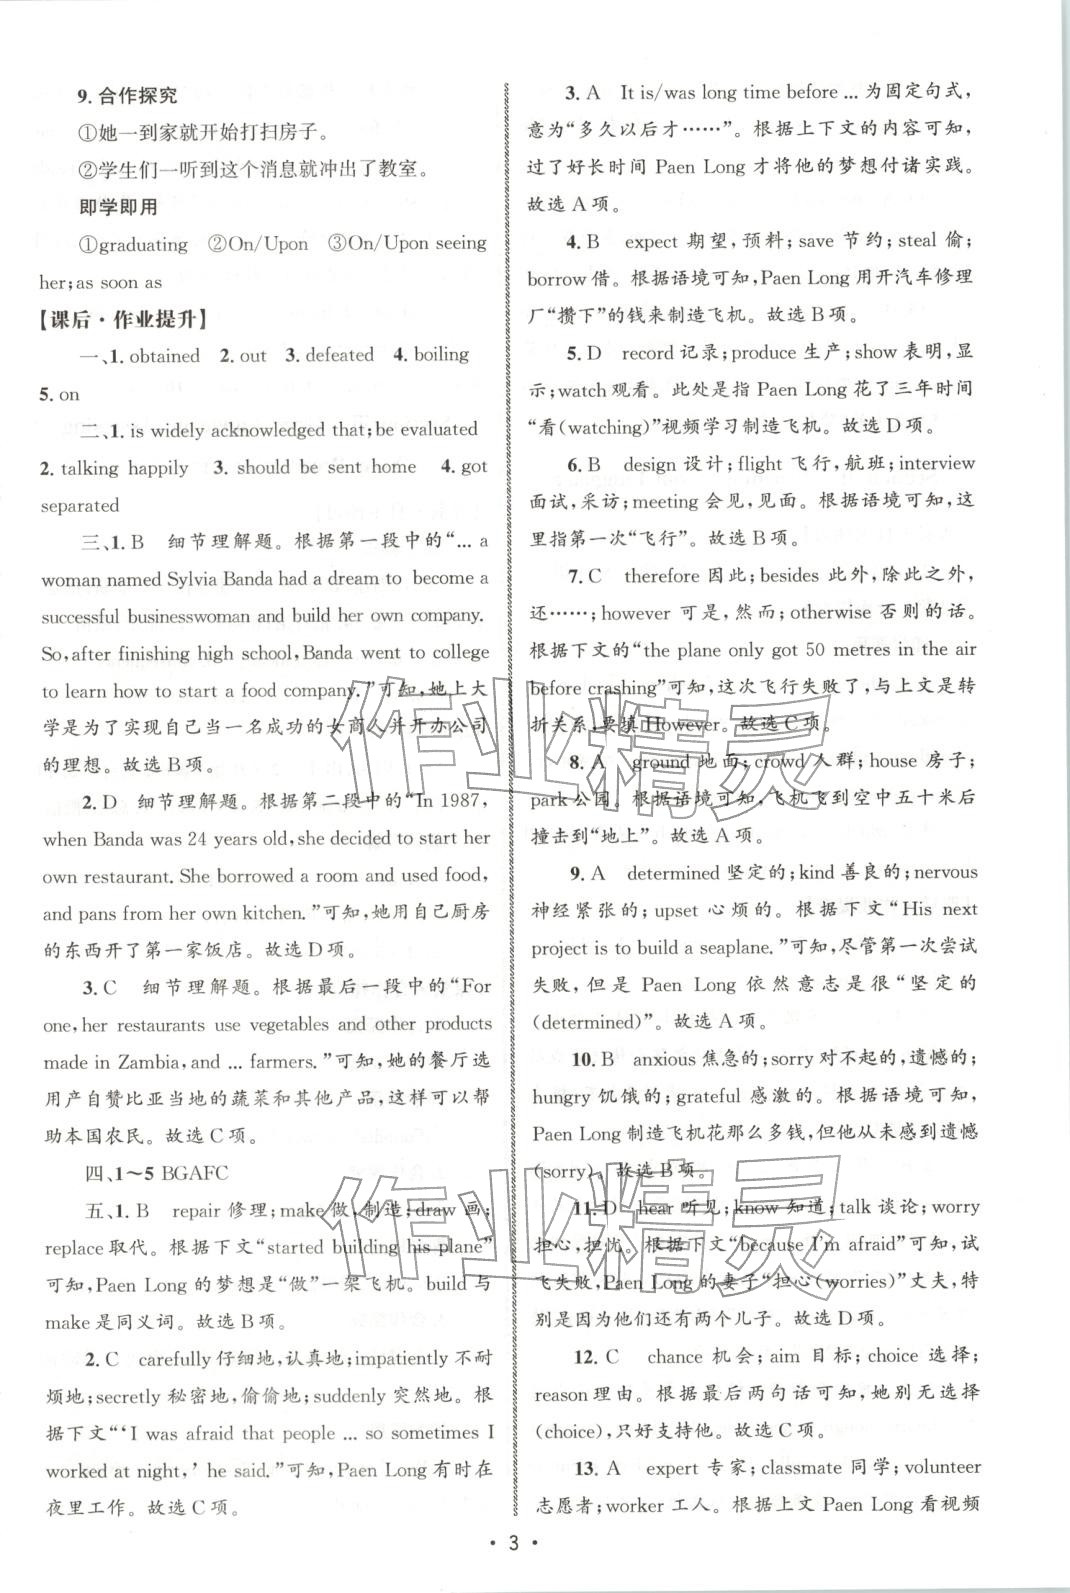 9. 合作探究
①她一到家就开始打扫房子。
②学生们一听到这个消息就冲出了教室。
即学即用
①graduating ②On/Upon ③On/Upon seeing
her; as soon as
【课后·作业提升】
一、1. obtained 2. out 3. defeated 4. boiling
5. on
二、1. is widely acknowledged that; be evaluated
2. talking happily 3. should be sent home 4. got
separated
三、1. B 细节理解题。根据第一段中的“... a
woman named Sylvia Banda had a dream to become a
successful businesswoman and build her own company.
So, after finishing high school, Banda went to college
to learn how to start a food company.”可知,她上大
学是为了实现自己当一名成功的女商人并开办公司
的理想。故选B项。
2. D 细节理解题。根据第二段中的“In 1987,
when Banda was 24 years old, she decided to start her
own restaurant. She borrowed a room and used food,
and pans from her own kitchen.”可知,她用自己厨房
的东西开了第一家饭店。故选D项。
3. C 细节理解题。根据最后一段中的“For
one, her restaurants use vegetables and other products
made in Zambia, and ... farmers.”可知,她的餐厅选
用产自赞比亚当地的蔬菜和其他产品,这样可以帮
助本国农民。故选C项。
四、1~5 BGAFC
五、1. B repair 修理; make 做,制造; draw 画;
replace 取代。根据下文“started building his plane”
可知,Paen Long 的梦想是“做”一架飞机。build 与
make 是同义词。故选B项。
2. C carefully 仔细地,认真地; impatiently 不耐
烦地; secretly 秘密地,偷偷地; suddenly 突然地。根
据下文“‘I was afraid that people ... so sometimes I
worked at night,’ he said.”可知,Paen Long 有时在
夜里工作。故选C项。
3. A It is/was long time before ... 为固定句式,
意为“多久以后才……”。根据上下文的内容可知,
过了好长时间 Paen Long 才将他的梦想付诸实践。
故选A项。
4. B expect 期望,预料; save 节约; steal 偷;
borrow 借。根据语境可知,Paen Long 用开汽车修理
厂“攒下”的钱来制造飞机。故选B项。
5. D record 记录; produce 生产; show 表明,显
示; watch 观看。此处是指 Paen Long 花了三年时间
“看(watching)”视频学习制造飞机。故选D项。
6. B design 设计; flight 飞行,航班; interview
面试,采访; meeting 会见,见面。根据语境可知,这
里指第一次“飞行”。故选B项。
7. C therefore 因此; besides 此外,除此之外,
还……; however 可是,然而; otherwise 否则的话。
根据下文的“the plane only got 50 metres in the air
before crashing”可知,这次飞行失败了,与上文是转
折关系,要填 However。故选C项。
8. A ground 地面; crowd 人群; house 房子;
park 公园。根据语境可知,飞机飞到空中五十米后
撞击到“地上”。故选A项。
9. A determined 坚定的; kind 善良的; nervous
神经紧张的; upset 心烦的。根据下文“His next
project is to build a seaplane.”可知,尽管第一次尝试
失败,但是 Paen Long 依然意志是很“坚定的
(determined)”。故选A项。
10. B anxious 焦急的; sorry 对不起的,遗憾的;
hungry 饥饿的; grateful 感激的。根据语境可知,
Paen Long 制造飞机花那么多钱,但他从未感到遗憾
(sorry)。故选B项。
11. D hear 听见; know 知道; talk 谈论; worry
担心,担忧。根据下文“because I'm afraid”可知,试
飞失败,Paen Long 的妻子“担心(worries)”丈夫,特
别是因为他们还有两个儿子。故选D项。
12. C chance 机会; aim 目标; choice 选择;
reason 理由。根据最后两句话可知,她别无选择
(choice),只好支持他。故选C项。
13. A expert 专家; classmate 同学; volunteer
志愿者; worker 工人。根据上文 Paen Long 看视频
· 3 ·
作业精灵
作业精灵